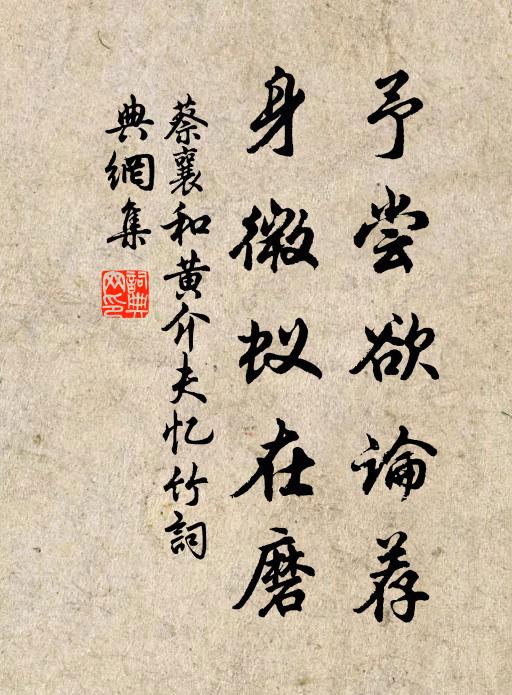 予尝欲論荐
身微蚁在磨
蔡襄和黄介夫忆竹詞
典網集
詞典网印